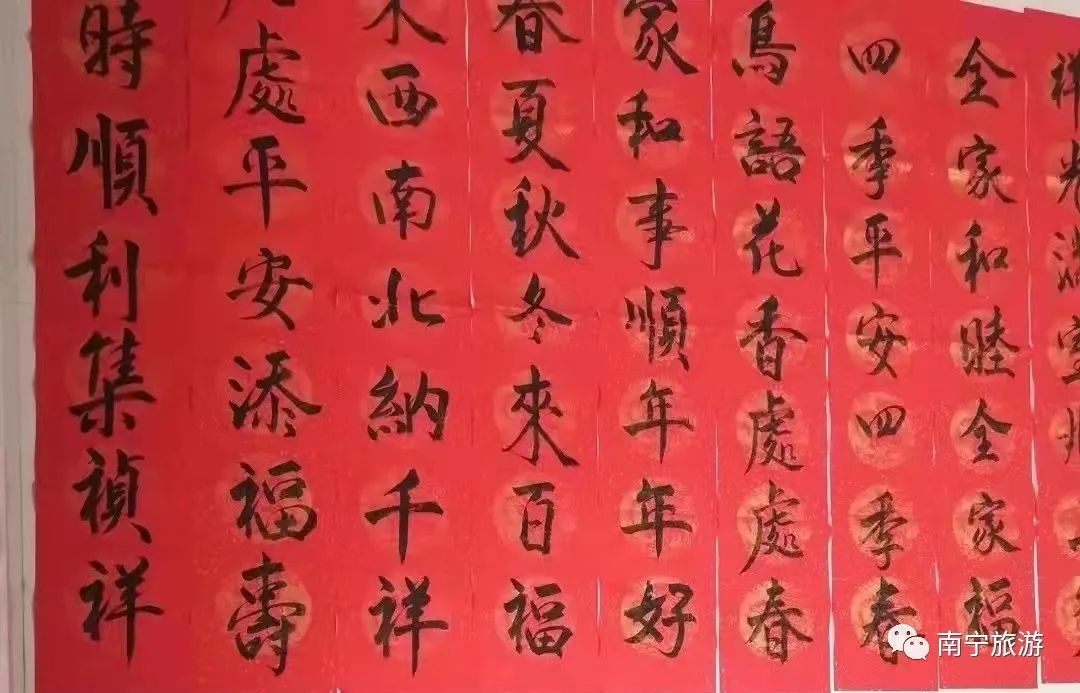 祥光滿
全家和睦全家福
四季平安四季春
鳥語花香處處春
家和事順年年好
春夏秋冬來百福
西南北納千祥
處平安添福壽
時順利集禎祥
南宁旅游